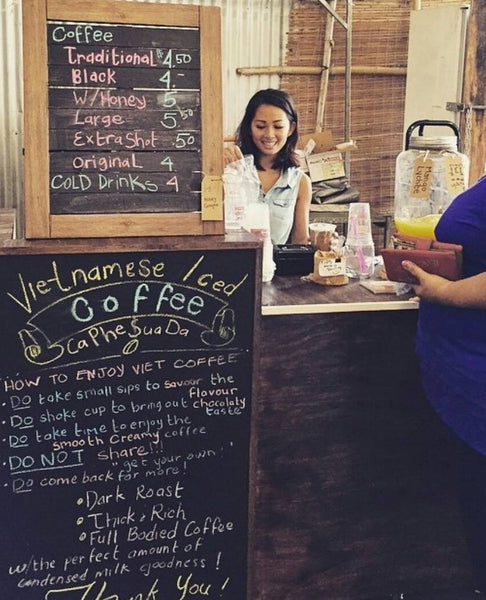 Coffee
Traditional $4.50
Black 4.-
w/Honey 5.-
Large 5.50
Extra Shot .50
original 4
COLD DRINKS 4
Vietnamese Iced
Coffee
Ca Phe Sua Da
HOW TO ENJOY VIET COFFEE
• DO take small sips to savour the flavour
• DO shake cup to bring out chocolaty taste
• DO take time to enjoy the smooth creamy coffee
• DO NOT share!!! "get your own!"
• DO come back for more!
• Dark Roast
• Thick & Rich
• Full Bodied Coffee
w/the perfect amount of
condensed milk goodness!
Thank You!
Mango